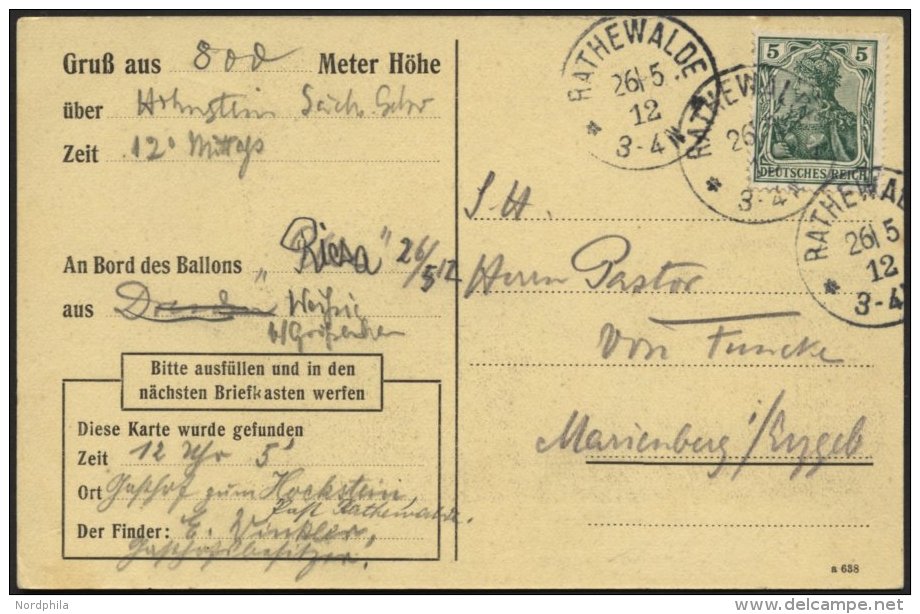 Gruß aus 800 Meter Höhe
über Hohnstein Sächs. Schw
Zeit 12° Mittags
An Bord des Ballons "Riesa" 26/5 12
aus Weißig
b/Großenhain
Bitte ausfüllen und in den
nächsten Briefkasten werfen
Diese Karte wurde gefunden
Zeit 12 Uhr 5'
Ort Gasthof zum Hockstein,
Post Rathewalde.
Der Finder: E. Winkler,
Gasthofsbesitzer.
RATHEWALDE
26/5
12
3-4N
RATHEWAL
26
3-4
5 5
DEUTSCHES REICH
RATHEWAL
26/5
12
3-4
S. H.
Herrn Pastor
von Funcke
Marienberg i/Erzgeb
a 638
© Nordphila
www.delcampe.net